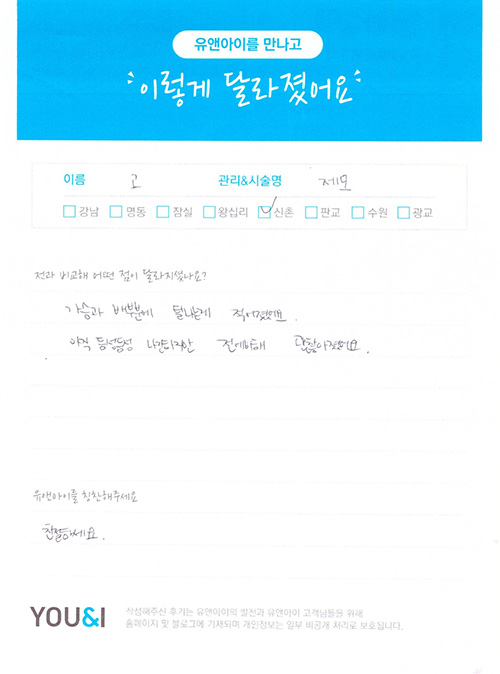 유앤아이를 만나고
이렇게 달라졌어요
이름 고 관리&시술명 제모
강남 명동 잠실 왕십리 신촌 판교 수원 광교
전과 비교해 어떤 점이 달라지셨나요?
가슴과 배부분에 털나는게 적어졌어요.
아직 듬성듬성 나긴하지만 전에비해 많이 적어졌어요.
유앤아이를 칭찬해주세요
친절하세요.
YOU&I
작성해주신 후기는 유앤아이의 발전과 유앤아이 고객님들을 위해
홈페이지 및 블로그에 기재되며 개인정보는 일부 비공개 처리로 보호됩니다.